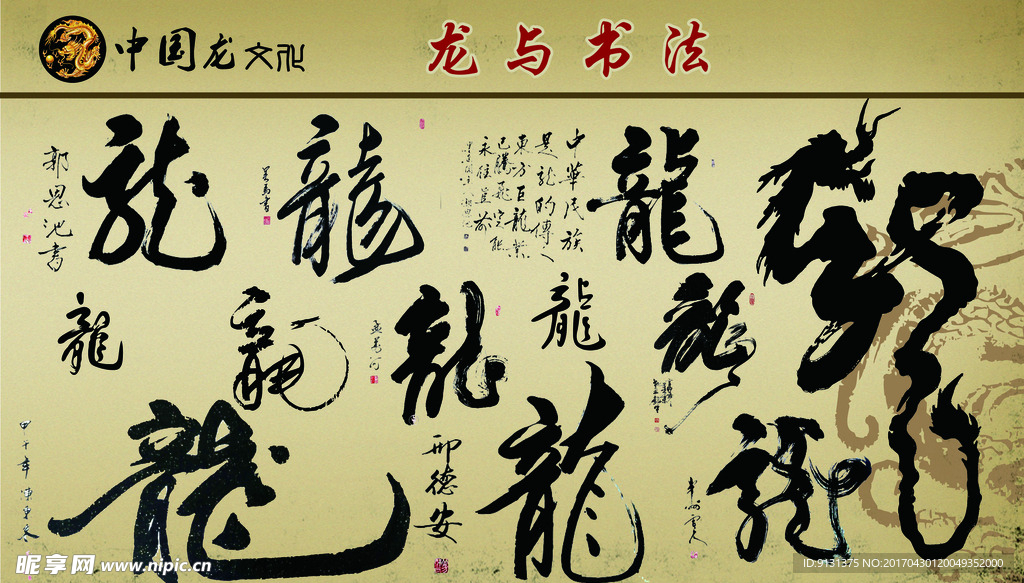 中国龙文化
龙与书法
郭恩池书
龍
龍
中華民族
是龍的傳人
東方巨龍業
已騰飛定能
永往直前
龍
龍
龍
龍
龍
龍
龍
龍
邢德安
龍
龍
龍
昵享网 www.nipic.cn
ID:9131375 NO:20170430120049352000